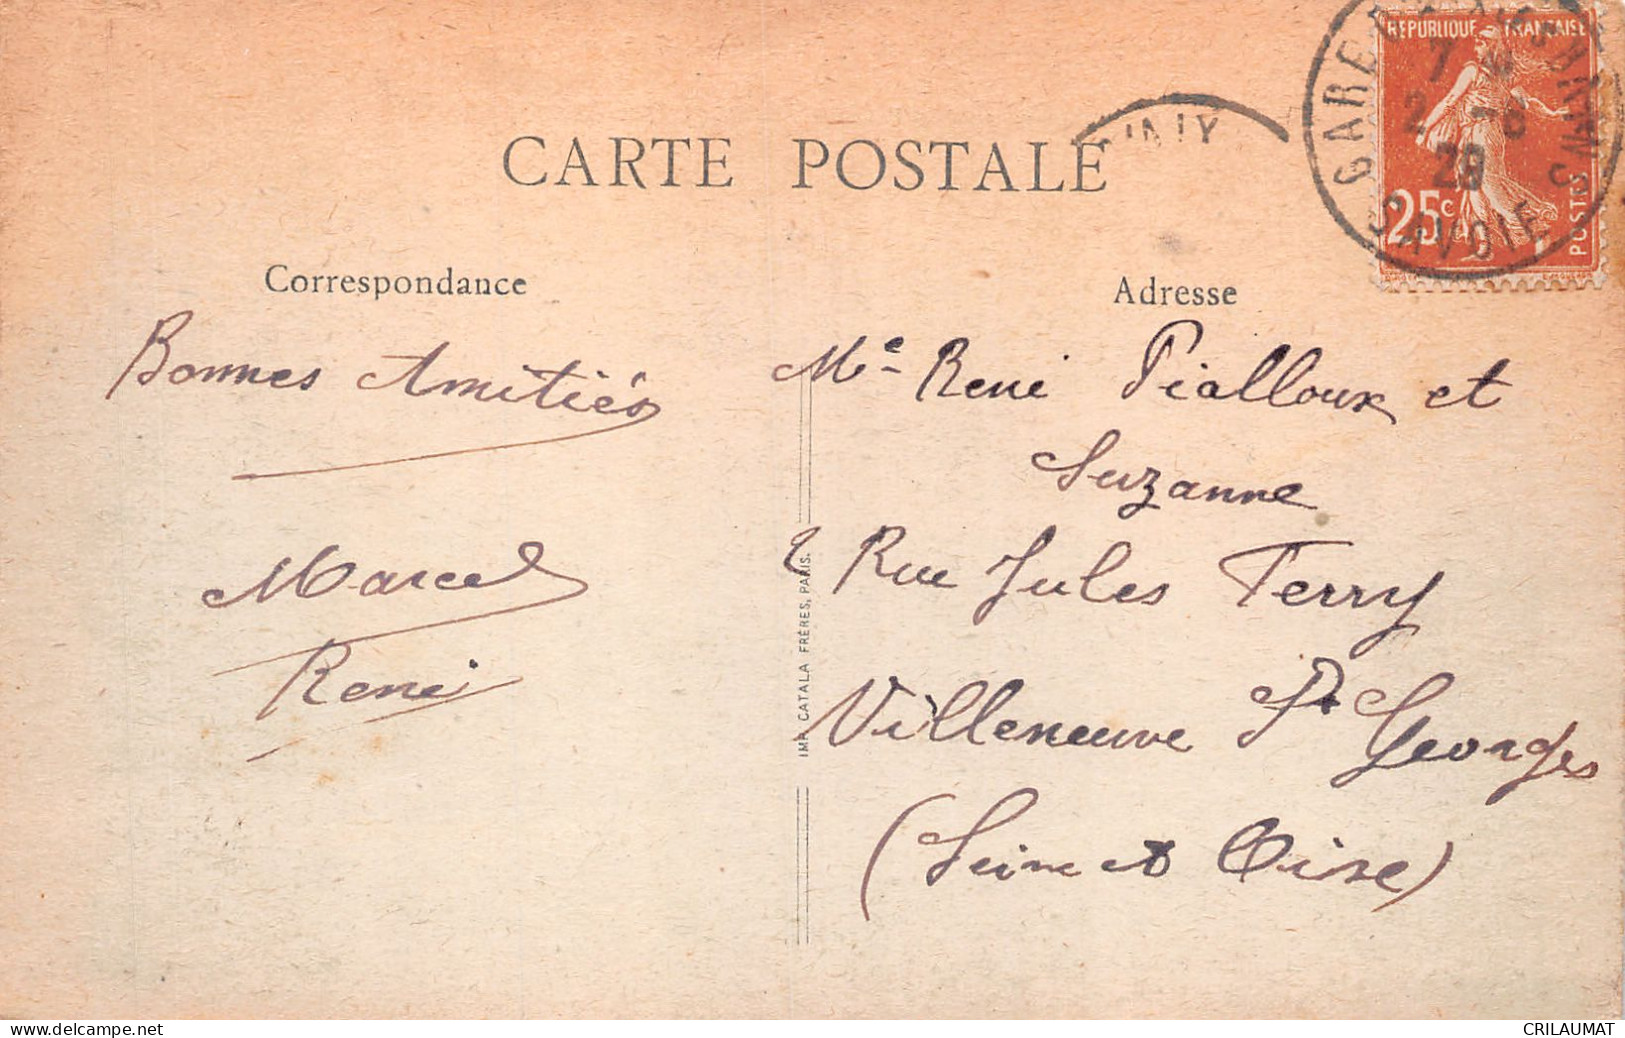 CARTE POSTALE
RÉPUBLIQUE FRANÇAISE
25c
POSTES
SAVOIE
29
Correspondance
Adresse
Bonnes Amitiés
Marcel
René
Me René Pialloux et
Suzanne
2 Rue Jules Ferry
Villeneuve St Georges
(Seine et Oise)
IMP. CATALA FRÈRES, PARIS.
delcampe.net
CRILAUMAT